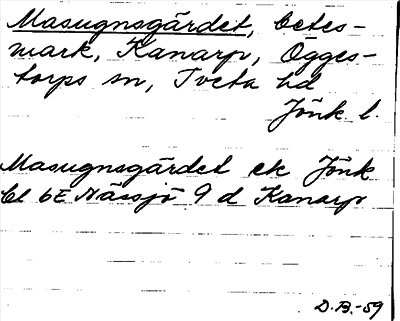 Masugnsgärdet, betes-
mark, Kanarp, Ögges-
torps sn, Tveta hd
Jönk l.
Masugnsgärdet ek Jönk
bl 6E Nässjö 9 d Kanarp
D.B.-59